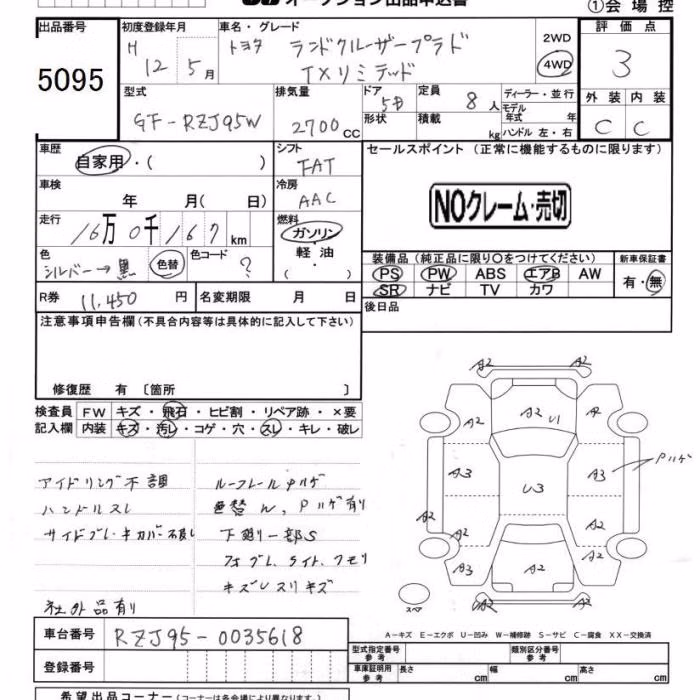 オークション出品申込書
①会場控
出品番号
5095
初度登録年月
H 12 5月
車名・グレード
トヨタ ランドクルーザープラド
TXリミテッド
2WD
4WD
評価点
3
外装 内装
C C
型式
GF-RZJ95W
排気量
2700cc
ドア 5D
形状
定員 8人
積載 kg
ディーラー・並行
モデル
年式 年
ハンドル 左・右
車歴
自家用・( )
シフト
FAT
車検
年 月( 日)
冷房
AAC
走行
16万0千167km
燃料
ガソリン・
軽油・
( )
色
シルバー→黒
色替
色コード
?
R券 11,450円
名変期限 月 日
セールスポイント (正常に機能するものに限ります)
NOクレーム・売切
装備品(純正品に限り○をつけてください)
PS PW ABS エアB AW
SR ナビ TV カワ
新車保証書
有・無
後日品
注意事項申告欄(不具合内容等は具体的に記入して下さい)
修復歴 有 〔箇所 〕
検査員 FW キズ・飛石・ヒビ割・リペア跡・×要
記入欄 内装 キズ・汚レ・コゲ・穴・スレ・キレ・破レ
アイドリング不調
ハンドルスレ
社外品有り
ルーフレールPハゲ
色替W、Pハゲ有り
下廻り一部S
フォグL、ライト、クモリ
キズUスリキズ
A2 A2
A2 A2 U1 A2
A3 U3 A3 Pハゲ
A2 A2 A2
A3 A2
A2 A2
スペア
A-キズ E-エクボ U-凹み W-補修跡 S-サビ C-腐食 XX-交換済
車台番号 RZJ95-0035618
登録番号
型式指定番号
参考
類別区分番号
参考
車庫証明用
参考
長さ cm 幅 cm 高さ cm
希望出品コーナー(コーナーは各会場により異なります。)